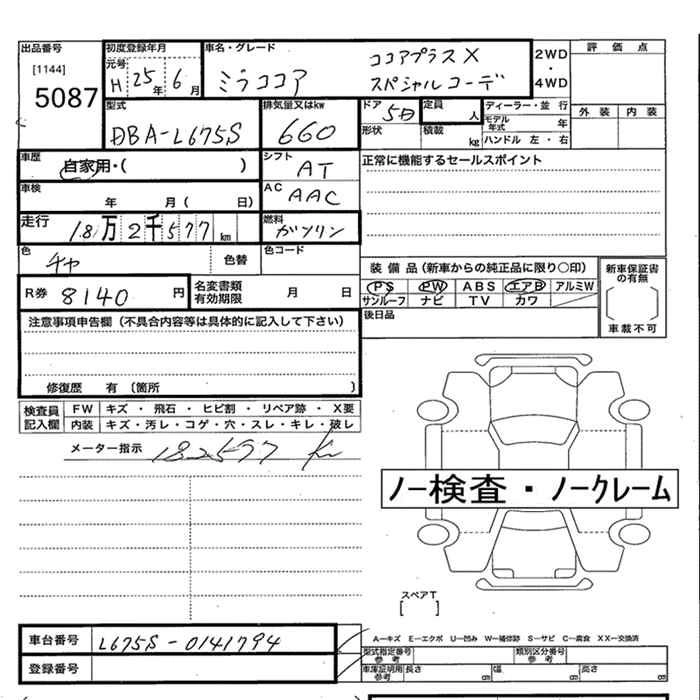 出品番号 初度登録年月 車名・グレード ココアプラスX 2WD 評価点
[1144] 元号 ・
5087 H 25年 6月 ミラココア スペシャルコーデ 4WD
型式 排気量又はkw ドア 5D 定員 人 ディーラー・並 行 外装 内装
DBA-L675S 660 形状 積載 kg モデル年式 年
ハンドル 左・右
車歴 自家用・( ) シフト AT 正常に機能するセールスポイント
車検 年 月( 日) AC AAC
走行 18万2千577km 燃料 ガソリン
色 チャ 色替 色コード
装備品(新車からの純正品に限り○印) 新車保証書の有無
R券 8140円 名変書類有効期限 月 日 PS PW ABS エアB アルミW
サンルーフ ナビ TV カワ
車載不可
注意事項申告欄(不具合内容等は具体的に記入して下さい) 後日品
修復歴 有(箇所 )
検査員 FW キズ・飛石・ヒビ割・リペア跡・X要
記入欄 内装 キズ・汚レ・コゲ・穴・スレ・キレ・破レ
メーター指示 182577 Km
ノー検査・ノークレーム
スペアT
[ ]
車台番号 L675S-0141794 A-キズ E-エクボ U-凹み W-補修跡 S-サビ C-腐食 XX-交換済
登録番号 型式指定番号 参考 類別区分番号 参考
車庫証明用 参考 長さ 幅 高さ